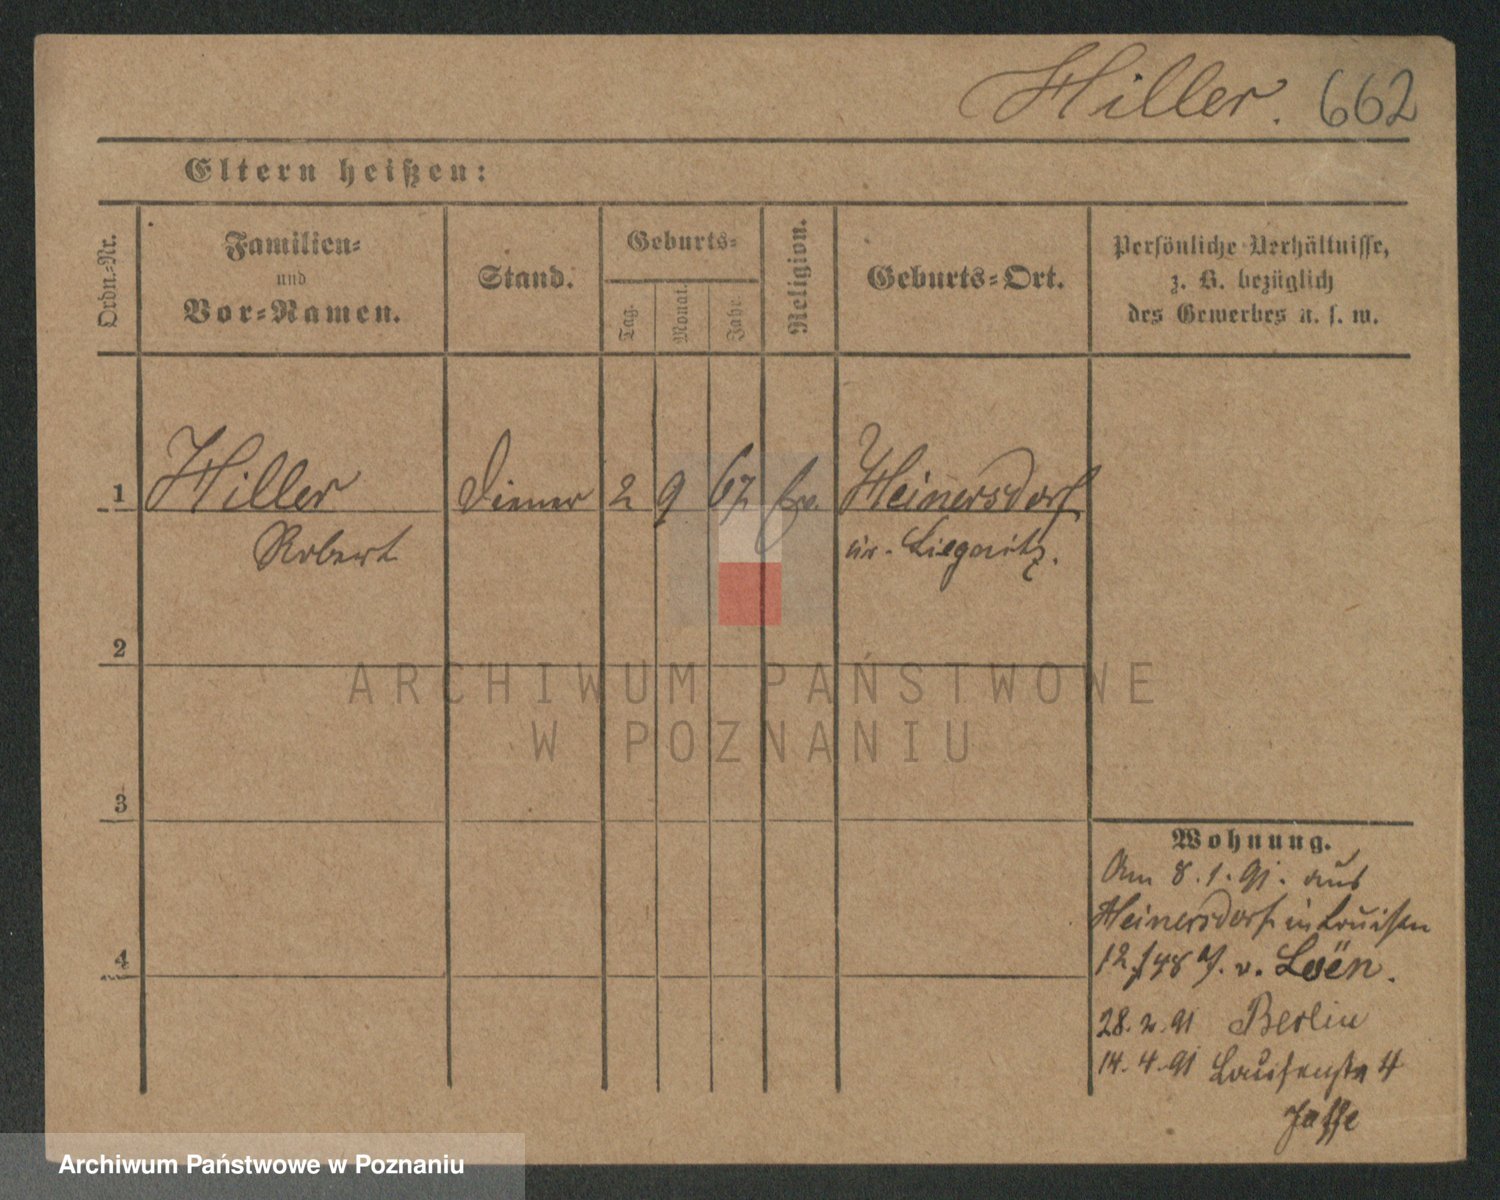 Hiller. 662
Eltern heißen:
Ordn.-Nr.
Familien-
und
Vor-Namen.
Stand.
Geburts-
Tag.
Monat.
Jahr.
Religion.
Geburts-Ort.
Persönliche Verhältnisse,
z. B. bezüglich
des Gewerbes u. s. w.
1 Hiller Diener 2 9 67 Ev. Heinersdorf
Robert Kr. Liegnitz.
2
ARCHIWUM PAŃSTWOWE
W POZNANIU
3
Wohnung.
Am 8.1.91. aus
Heinersdorf in Louisen
12 v. Loën.
4
28.2.91 Berlin
14.4.91 Louisenstr 4
Jaffe
Archiwum Państwowe w Poznaniu